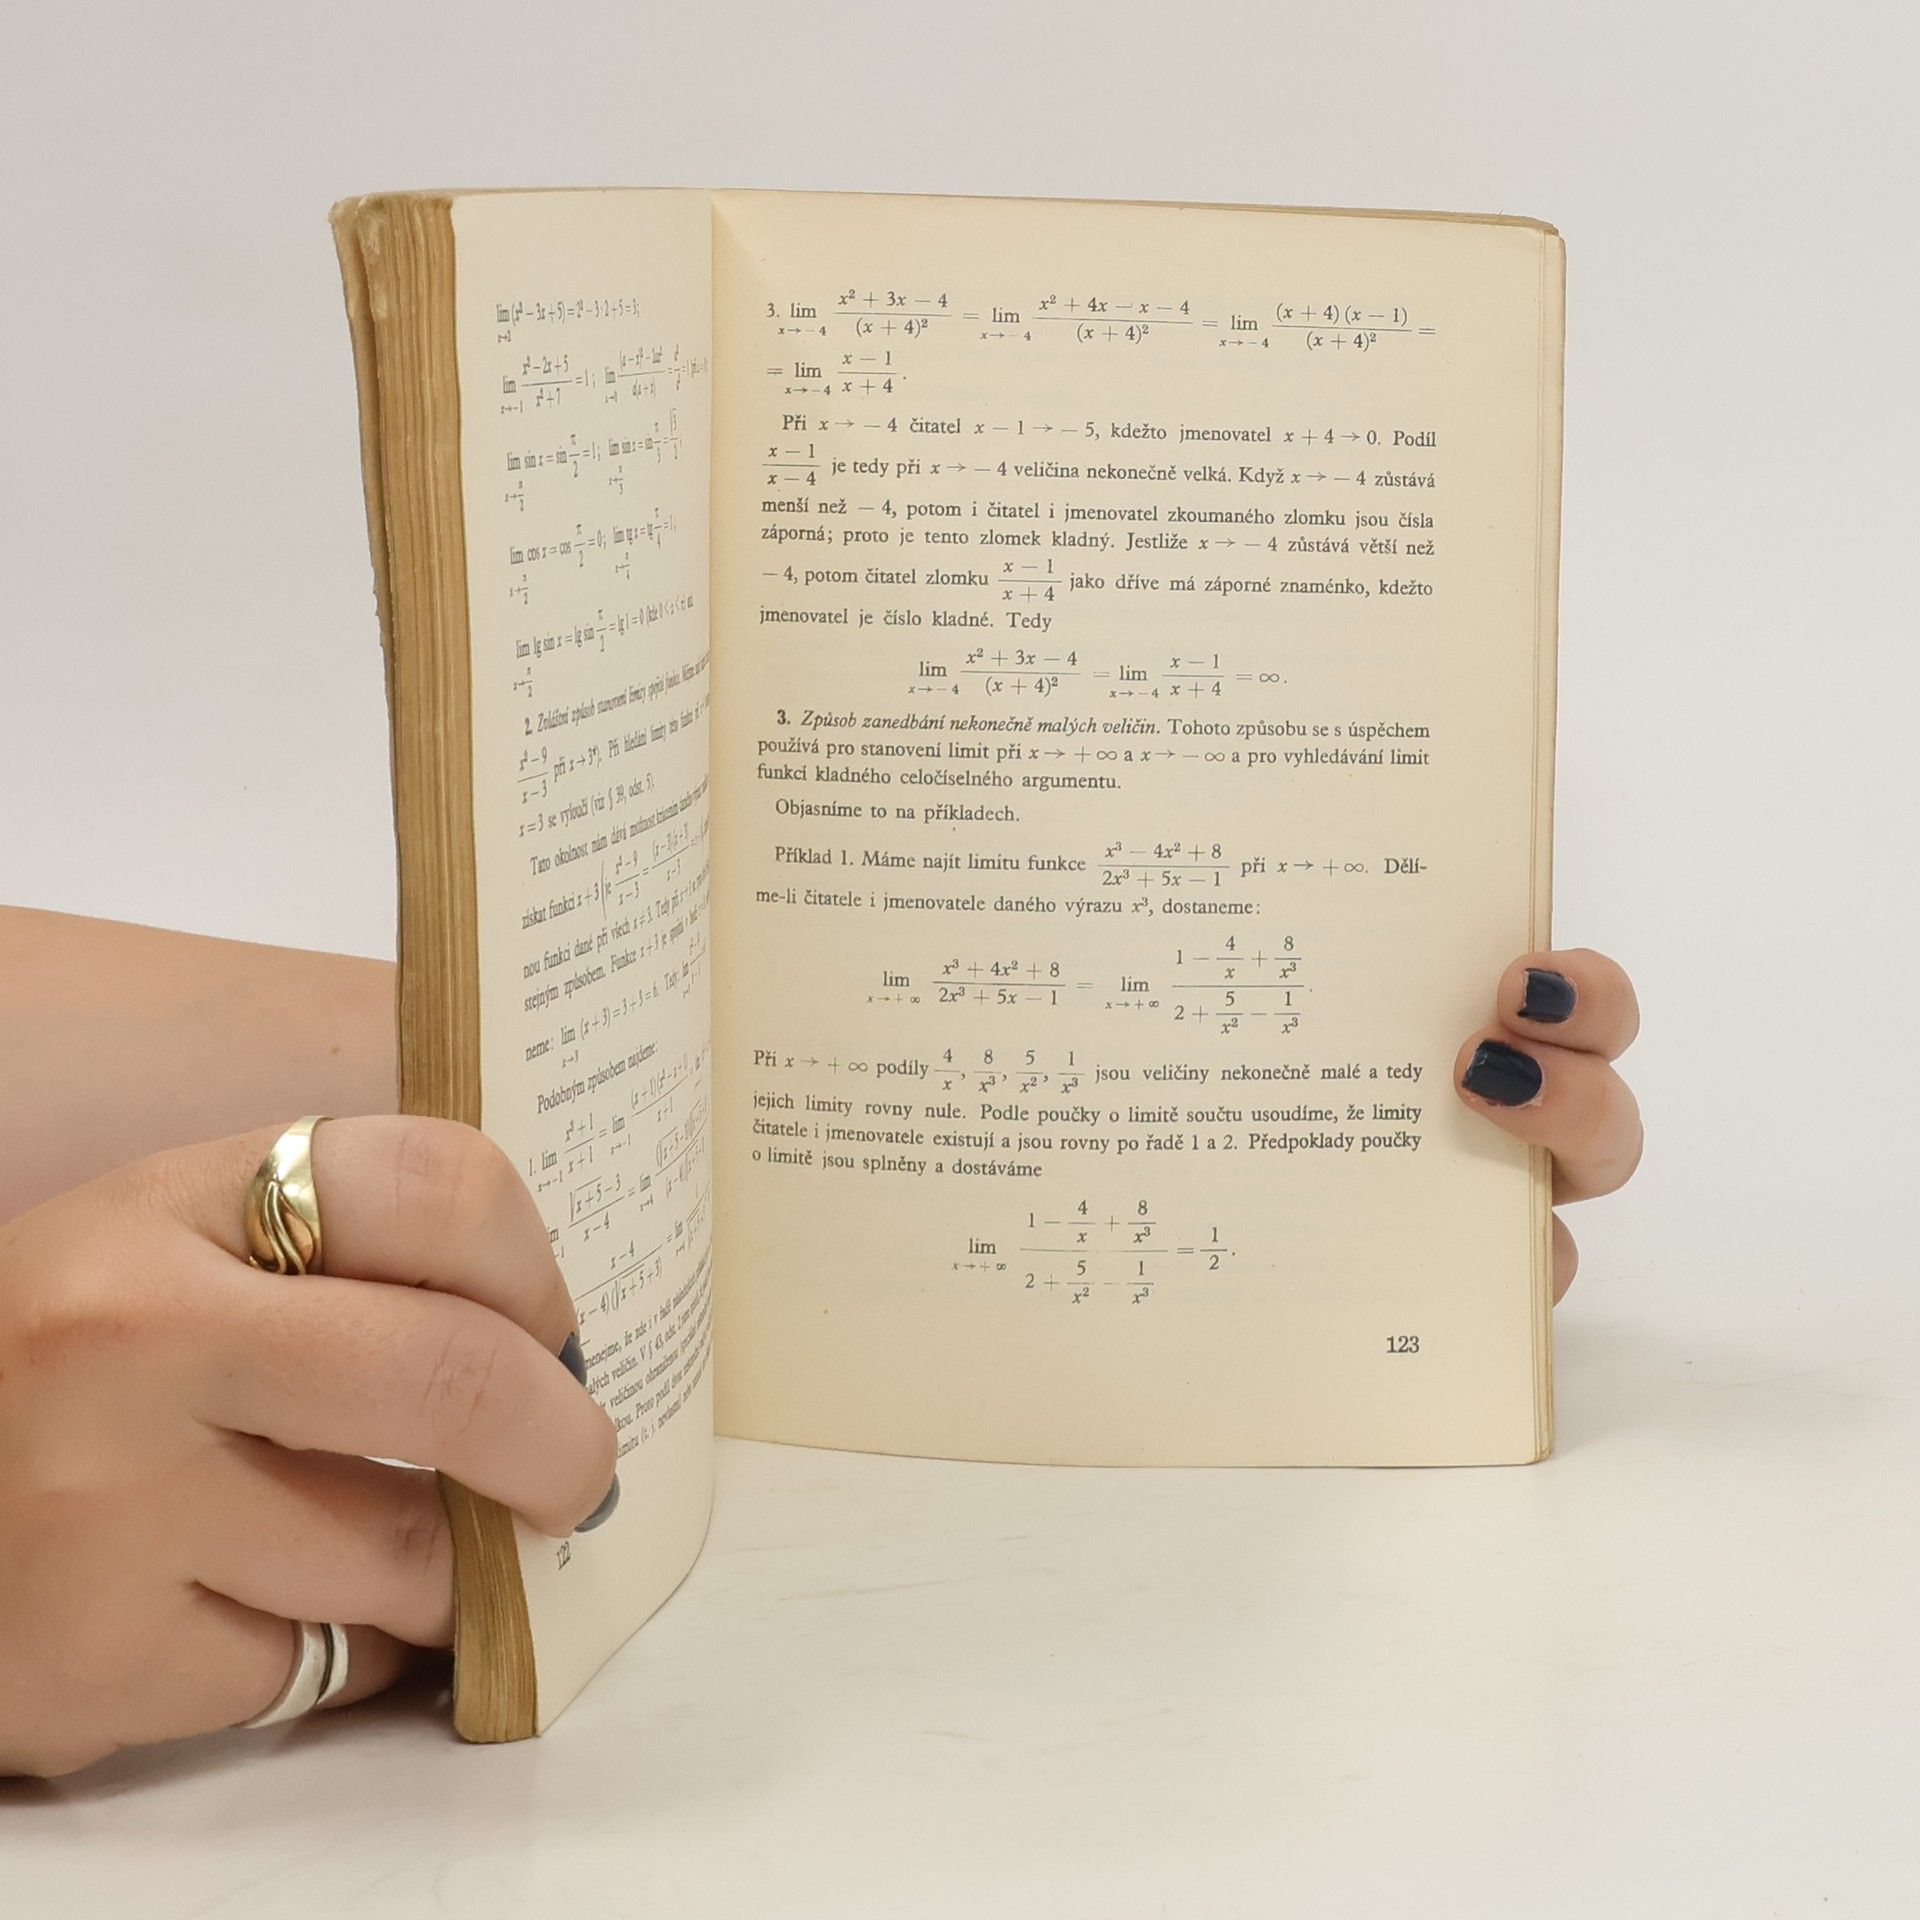 lim (x² − 3x + 5) = 2² − 3·2 + 5 = 3;
x→2
lim (x² − 2x + 5)/(x² + 7) = 1; lim
x→−1 x→0
lim sin x = sin π/2 = 1; lim sin x = sin π/3 = √3/2;
x→π/2 x→π/3
lim cos x = cos π/2 = 0; lim tg x = tg π/4 = 1;
x→π/2 x→π/4
lim lg sin x = lg sin π/2 = lg 1 = 0 (kde 0 < x < π)
x→π/2
2. Zvláštní způsob stanovení limity spojité funkce.
(x² − 9)/(x − 3) při x → 3*). Při hledání limity této funkce
x = 3 se vyloučí (viz § 39, odst. 5).
Tato okolnost nám dává možnost
získat funkci x + 3 (je (x² − 9)/(x − 3) = (x − 3)(x + 3)/(x − 3)
nou funkci dané při všech x
stejným způsobem. Funkce x + 3 je spojitá
neme: lim (x + 3) = 3 + 3 = 6. Tedy lim
x→3
Podobným způsobem najdeme:
1. lim (x³ + 1)/(x + 1) = lim (x + 1)(x² − x + 1)/(x + 1)
x→−1 x→−1
(√(x + 5) − 3)/(x − 4) = lim
x→4
(x − 4)/((x − 4)(√(x + 5) + 3)) = lim
že zde i v řadě
malých veličin. V § 43, odst.
veličinou ohraničenou
Proto podíl dvou
122
3. lim (x² + 3x − 4)/((x + 4)²) = lim (x² + 4x − x − 4)/((x + 4)²) = lim ((x + 4)(x − 1))/((x + 4)²) =
x→−4 x→−4 x→−4
= lim (x − 1)/(x + 4).
x→−4
Při x → − 4 čitatel x − 1 → − 5, kdežto jmenovatel x + 4 → 0. Podíl
(x − 1)/(x − 4) je tedy při x → − 4 veličina nekonečně velká. Když x → − 4 zůstává
menší než − 4, potom i čitatel i jmenovatel zkoumaného zlomku jsou čísla
záporná; proto je tento zlomek kladný. Jestliže x → − 4 zůstává větší než
− 4, potom čitatel zlomku (x − 1)/(x + 4) jako dříve má záporné znaménko, kdežto
jmenovatel je číslo kladné. Tedy
lim (x² + 3x − 4)/((x + 4)²) = lim (x − 1)/(x + 4) = ∞.
x→−4 x→−4
3. Způsob zanedbání nekonečně malých veličin. Tohoto způsobu se s úspěchem
používá pro stanovení limit při x → + ∞ a x → − ∞ a pro vyhledávání limit
funkcí kladného celočíselného argumentu.
Objasníme to na příkladech.
Příklad 1. Máme najít limitu funkce (x³ − 4x² + 8)/(2x³ + 5x − 1) při x → + ∞. Dělí-
me-li čitatele i jmenovatele daného výrazu x³, dostaneme:
lim (x³ + 4x² + 8)/(2x³ + 5x − 1) = lim (1 − 4/x + 8/x³)/(2 + 5/x² − 1/x³).
x→+∞ x→+∞
Při x → + ∞ podíly 4/x, 8/x³, 5/x², 1/x³ jsou veličiny nekonečně malé a tedy
jejich limity rovny nule. Podle poučky o limitě součtu usoudíme, že limity
čitatele i jmenovatele existují a jsou rovny po řadě 1 a 2. Předpoklady poučky
o limitě jsou splněny a dostáváme
lim (1 − 4/x + 8/x³)/(2 + 5/x² − 1/x³) = 1/2.
x→+∞
123